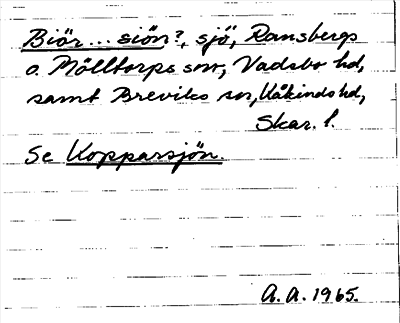 Biör... siön?, sjö, Ransbergs
o. Mölltorps snr, Vadsbo hd,
samt Breviks sn, Kåkinds hd,
Skar. l.
Se Kopparsjön.
A. A. 1965.